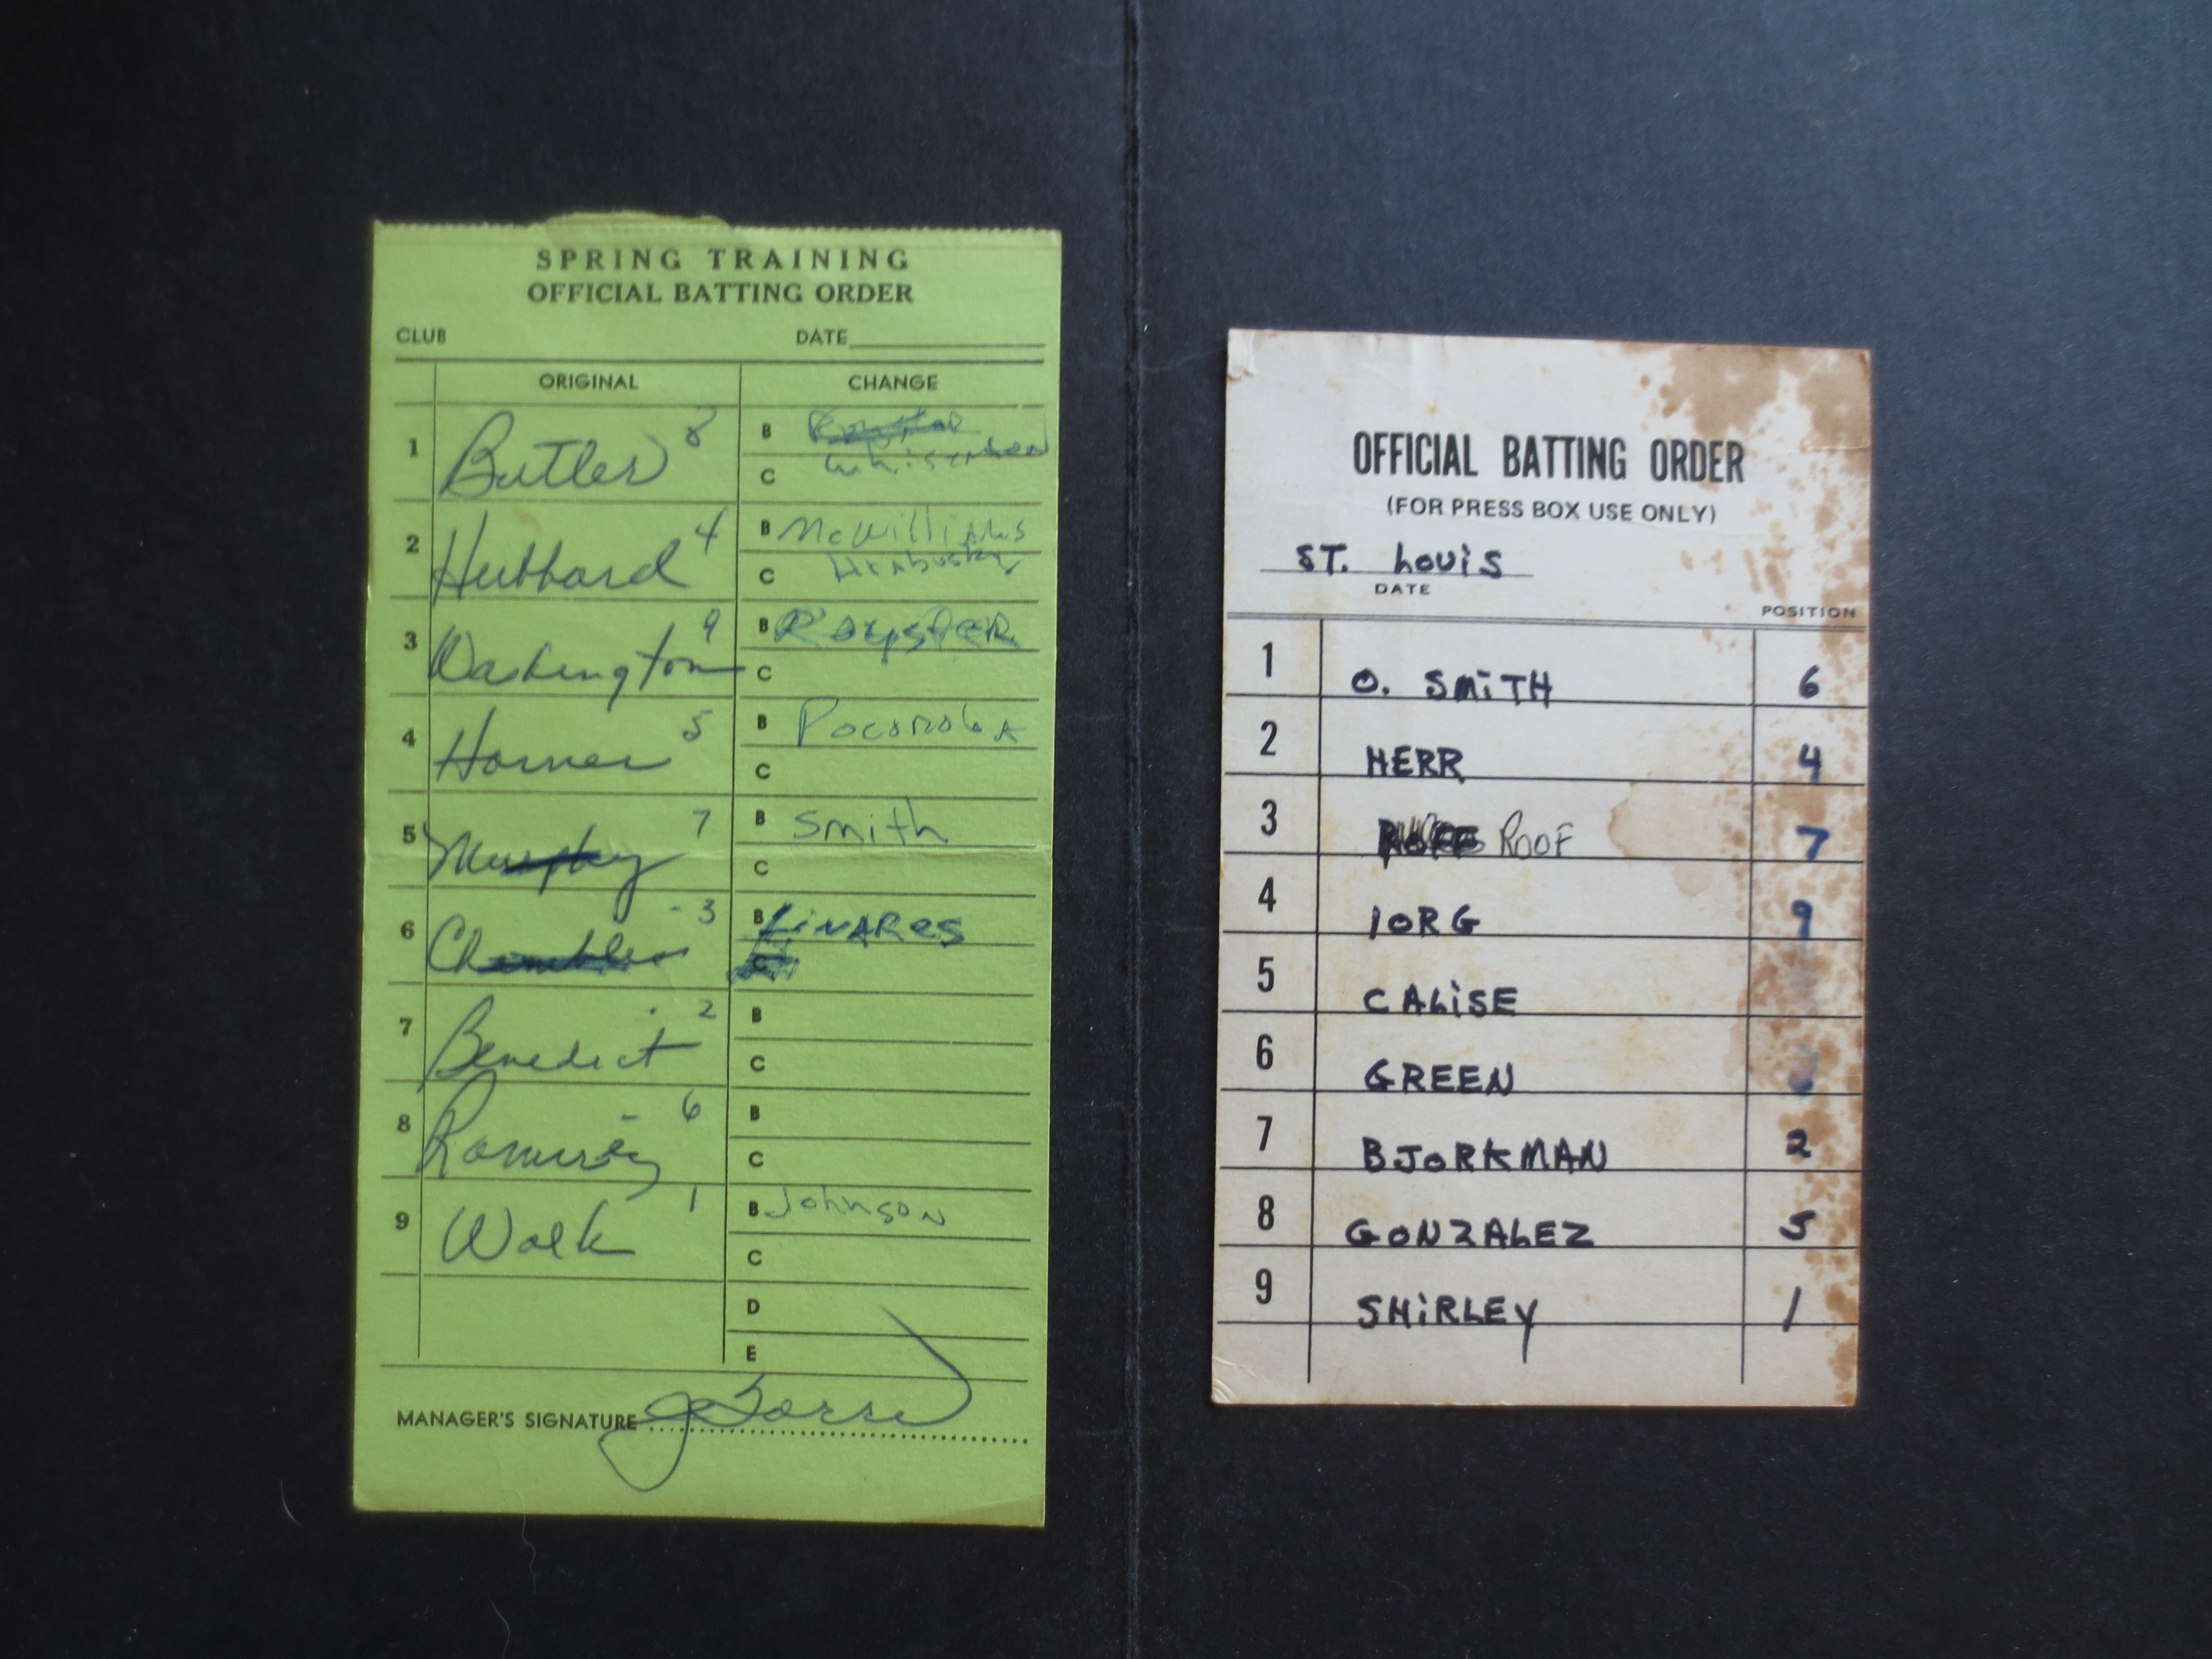 SPRING TRAINING
OFFICIAL BATTING ORDER
CLUB DATE
ORIGINAL CHANGE
1 Butler 8 B
Whisenton
C
2 Hubbard 4 B McWilliams
C Hrabusky
3 Washington 9 B Royster
C
4 Horner 5 B Pocoroba
C
5 Murphy 7 B Smith
C
6 Chambliss - 3 B LINARES
C
7 Benedict 2 B
C
8 Ramirez 6 B
C
9 Walk 1 B Johnson
C
D
E
MANAGER'S SIGNATURE J Torre
OFFICIAL BATTING ORDER
(FOR PRESS BOX USE ONLY)
ST. LOUIS
DATE
POSITION
1 O. SMITH 6
2 HERR 4
3 ROOF 7
4 IORG 9
5 CALISE
6 GREEN
7 BJORKMAN 2
8 GONZALEZ 5
9 SHIRLEY 1